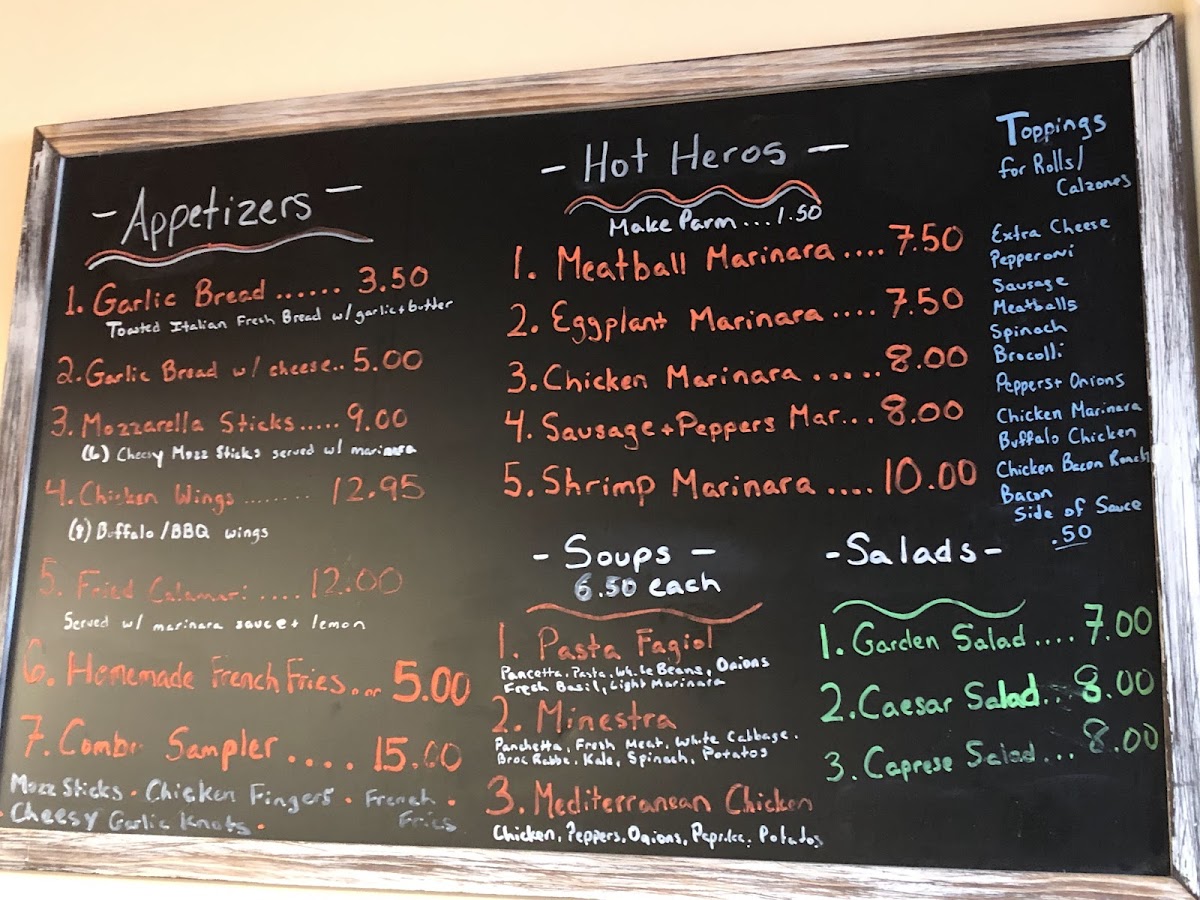 - Appetizers -
1. Garlic Bread ...... 3.50
Toasted Italian Fresh Bread w/ garlic + butter
2. Garlic Bread w/ cheese.. 5.00
3. Mozzarella Sticks..... 9.00
(6) Cheesy Mozz Sticks served w/ marinara
4. Chicken Wings ........ 12.95
(8) Buffalo / BBQ wings
5. Fried Calamari .... 12.00
Served w/ marinara sauce + lemon
6. Homemade French Fries.... 5.00
7. Combo Sampler .... 15.00
Mozz Sticks · Chicken Fingers · French Fries ·
Cheesy Garlic Knots ·
- Hot Heros -
Make Parm ... 1.50
1. Meatball Marinara .... 7.50
2. Eggplant Marinara .... 7.50
3. Chicken Marinara ...... 8.00
4. Sausage + Peppers Mar... 8.00
5. Shrimp Marinara .... 10.00
- Soups -
6.50 each
1. Pasta Fagiol
Pancetta, Pasta, White Beans, Onions
Fresh Basil, Light Marinara
2. Minestra
Panchetta, Fresh Meat, White Cabbage.
Broc Rabbe, Kale, Spinach, Potatos
3. Mediterranean Chicken
Chicken, Peppers, Onions, Paprika, Potatos
- Salads -
1. Garden Salad .... 7.00
2. Caesar Salad... 8.00
3. Caprese Salad ... 8.00
Toppings
for Rolls/
Calzones
Extra Cheese
Pepperoni
Sausage
Meatballs
Spinach
Brocolli
Peppers + Onions
Chicken Marinara
Buffalo Chicken
Chicken Bacon Ranch
Bacon
Side of Sauce
.50